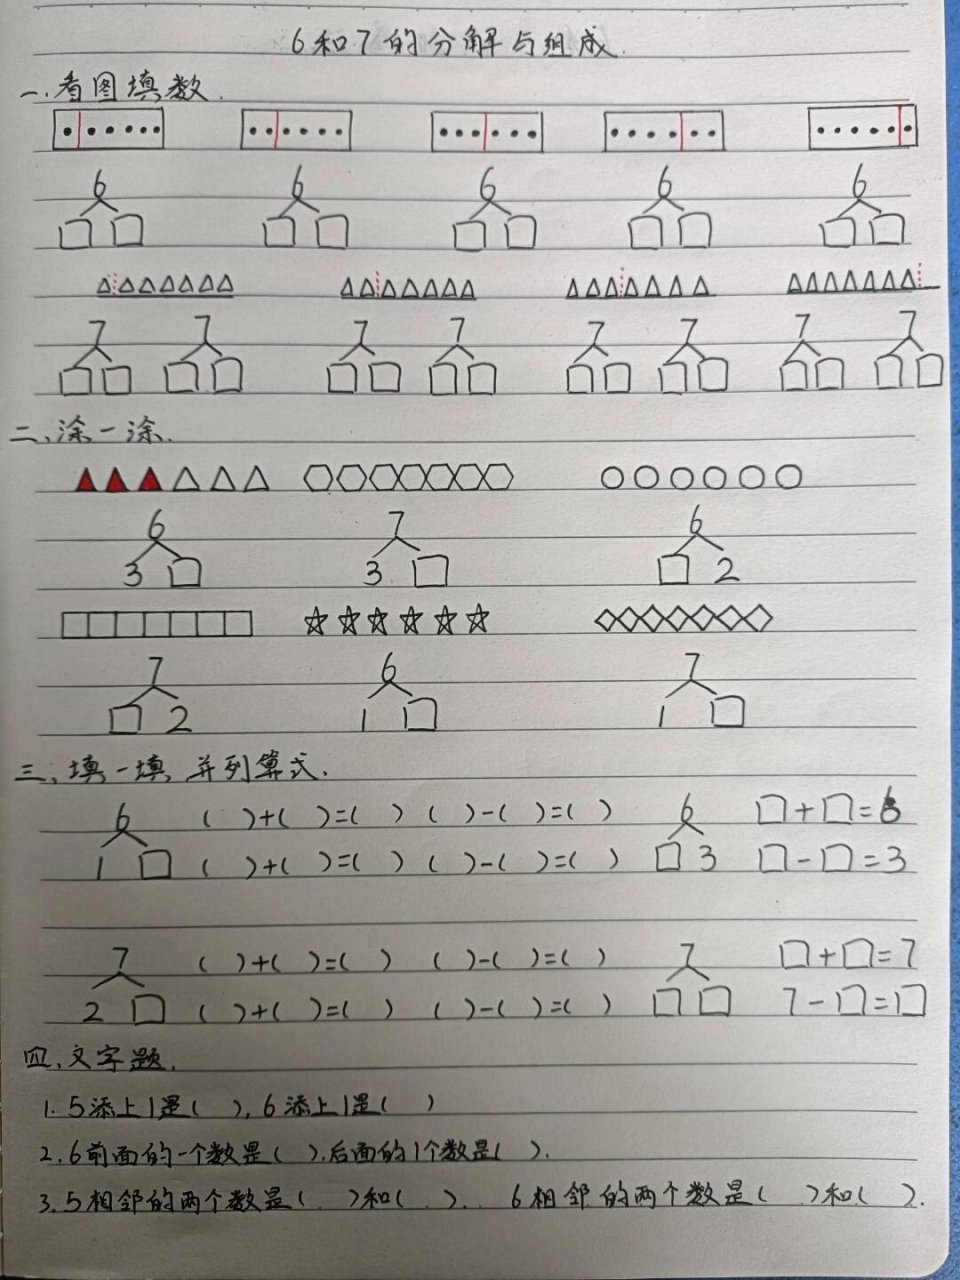 6和7的分解与组成.
一.看图填数.
6 6 6 6 6
7 7 7 7 7 7 7 7
二、涂一涂.
6 7 6
3 3 2
7 6 7
2 1 1
三、填一填,并列算式.
6 ( )+( )=( ) ( )-( )=( ) 6 □+□=6
1 □ ( )+( )=( ) ( )-( )=( ) □ 3 □-□=3
7 ( )+( )=( ) ( )-( )=( ) 7 □+□=7
2 □ ( )+( )=( ) ( )-( )=( ) □ □ 7-□=□
四、文字题.
1. 5添上1是( ), 6添上1是( )
2. 6前面的一个数是( ).后面的1个数是( ).
3. 5相邻的两个数是( )和( ). 6相邻的两个数是( )和( ).